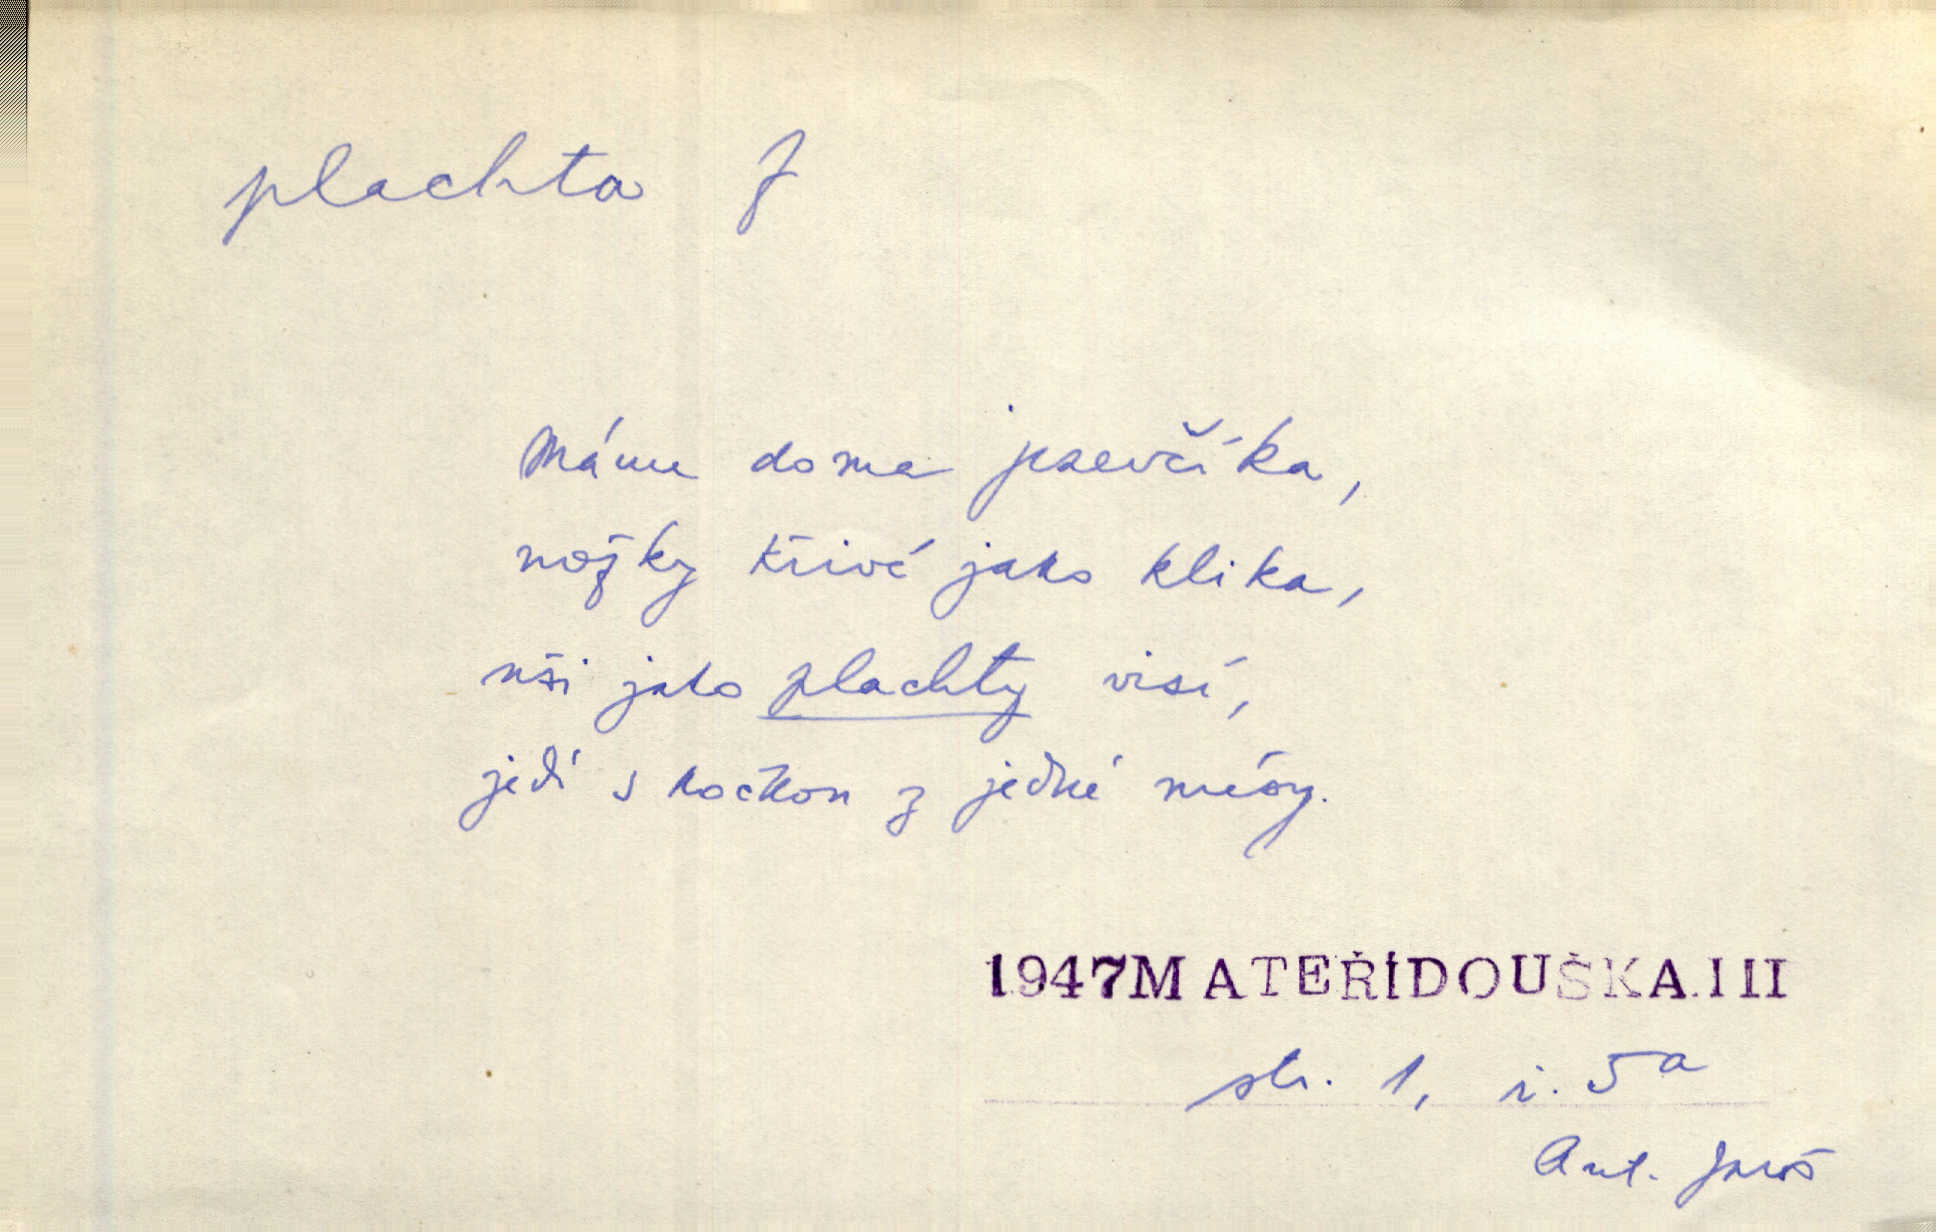 plachta f
Máme doma jezevčíka,
nožky křivé jako klika,
uši jako plachty visí,
jedí s kočkou z jedné mísy.
1947 MATEŘÍDOUŠKA.III
str. 1, r. 5a
Ant. Jaroš